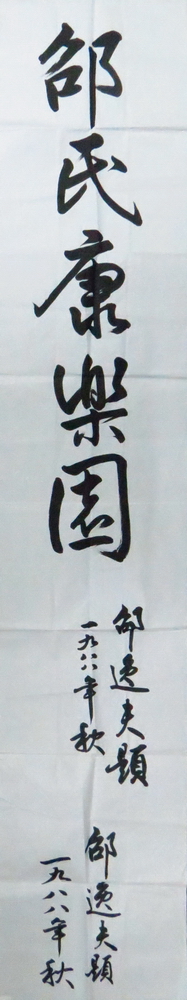 邵氏康樂園
邵逸夫題
一九八八年秋
邵逸夫題
一九八八年秋